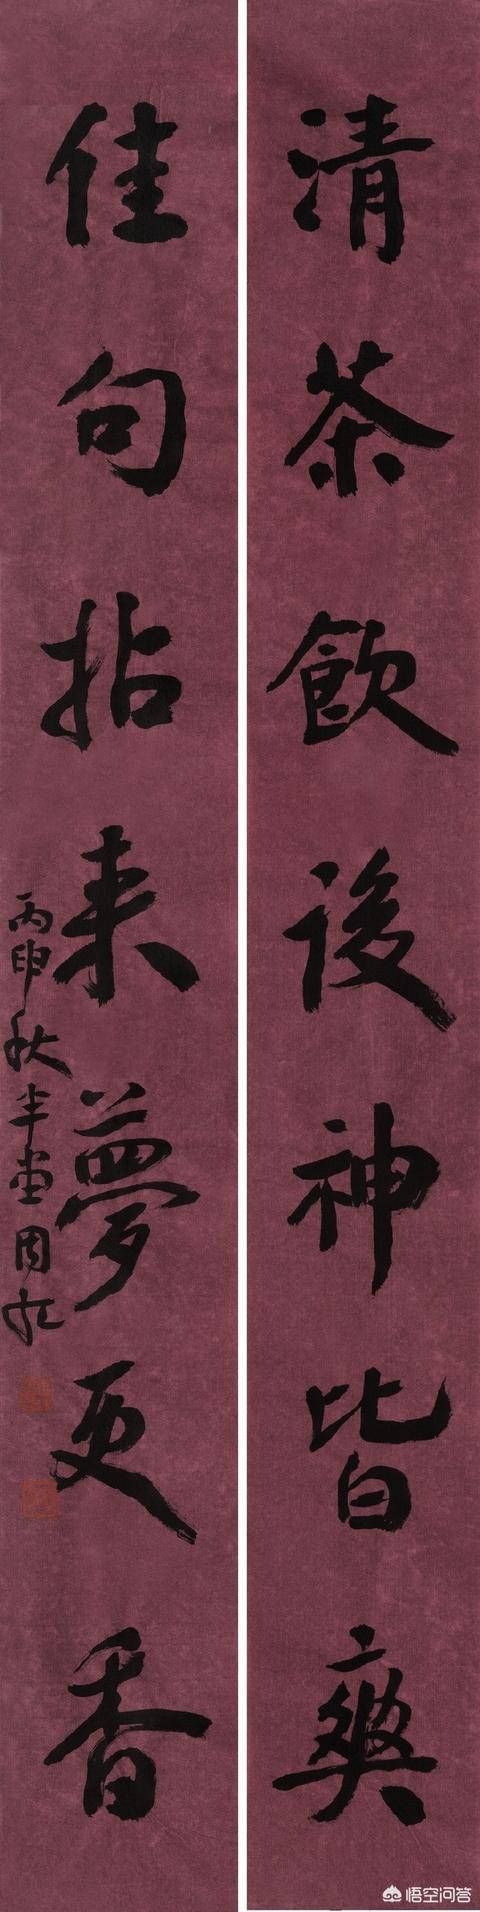 清茶飲後神皆爽
佳句拈来夢更香
丙申秋半堂周
悟空问答